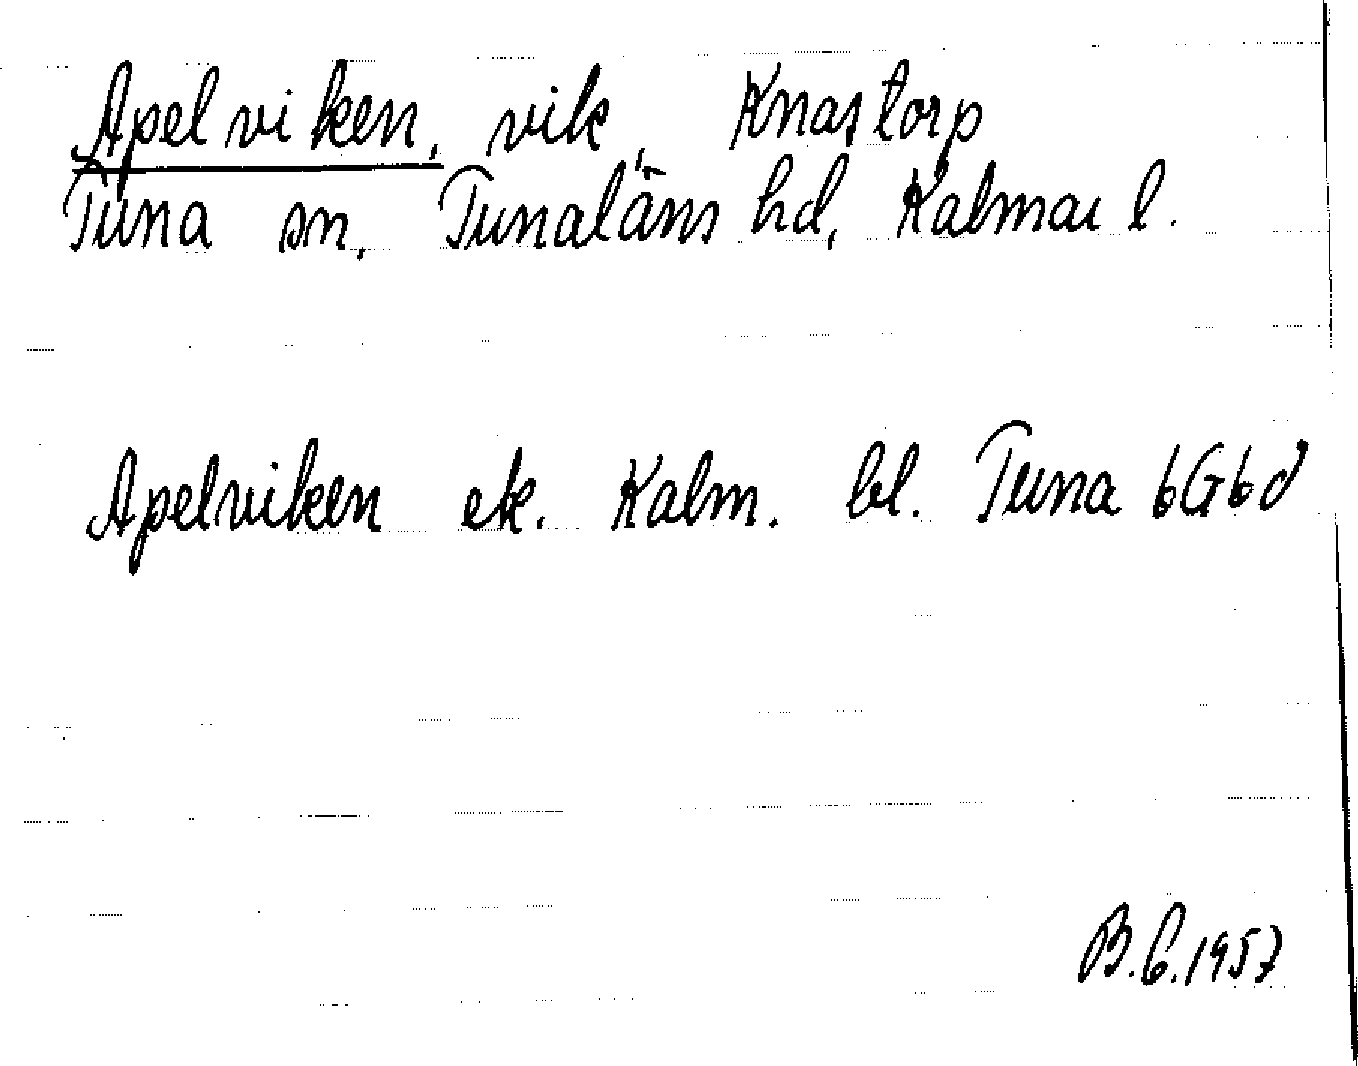 Apelviken, vik, Knastorp
Tuna sn, Tunaläns hd, Kalmar l.
Apelviken ek. Kalm. bl. Tuna 6G6d
B.G.1957